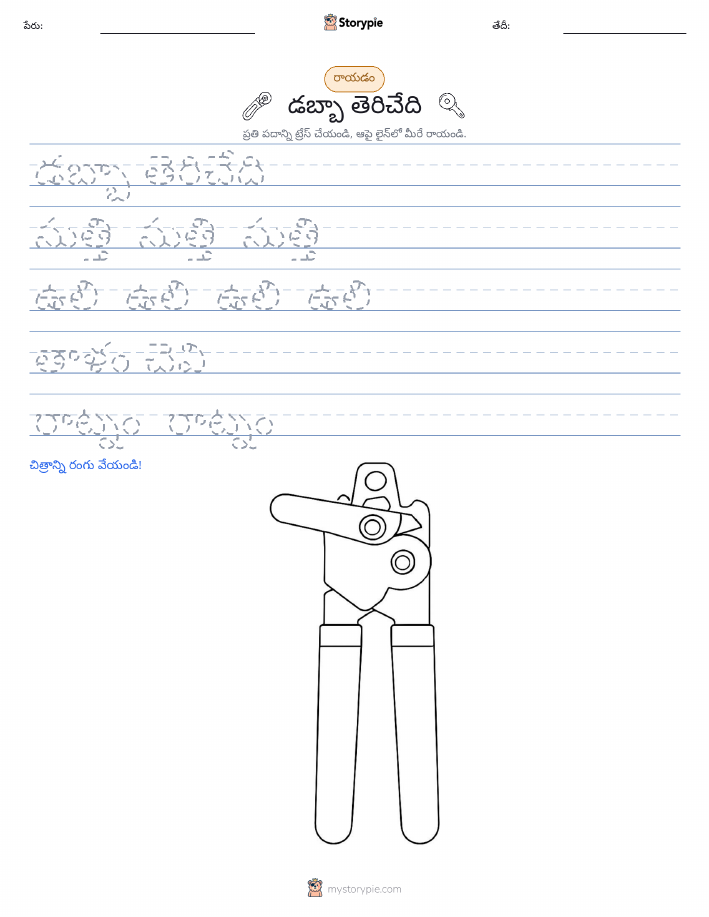 పేరు:
Storypie
తేదీ:
రాయడం
డబ్బా తెరిచేది
ప్రతి పదాన్ని ట్రేస్ చేయండి, ఆపై లైన్‌లో మీరే రాయండి.
డబ్బా తెరిచేది
సుత్తి సుత్తి సుత్తి
ఊలి ఊలి ఊలి ఊలి
తాళం చెవి
రాట్నం రాట్నం
చిత్రాన్ని రంగు వేయండి!
mystorypie.com